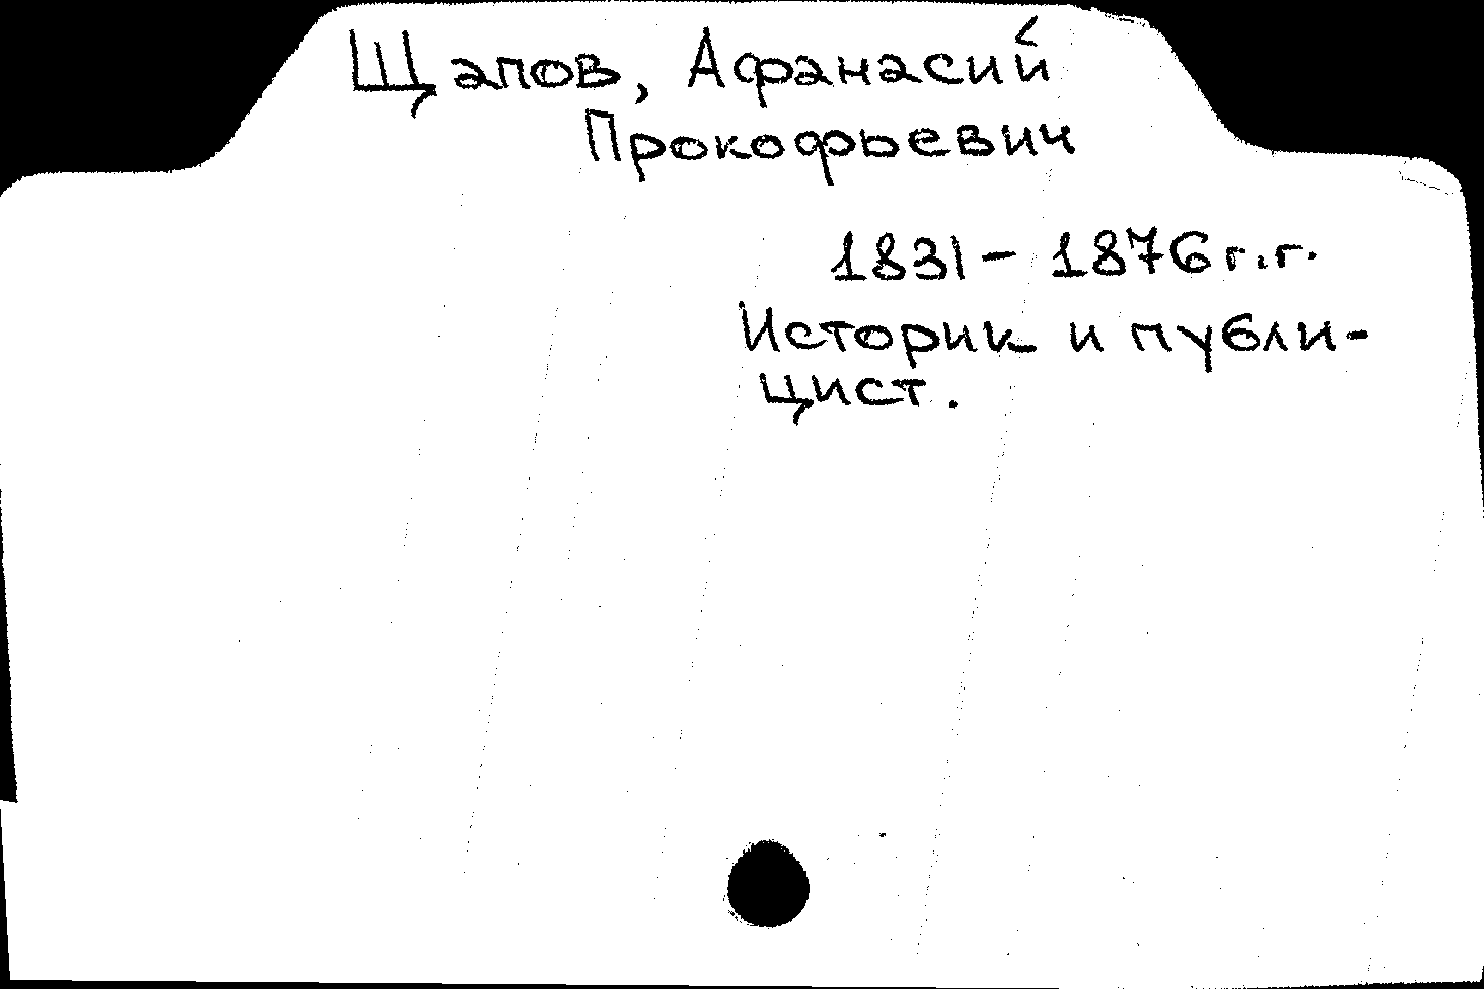 Щапов, Афанасий
Прокофьевич
1831 - 1876 г.г.
Историк и публи-
цист.